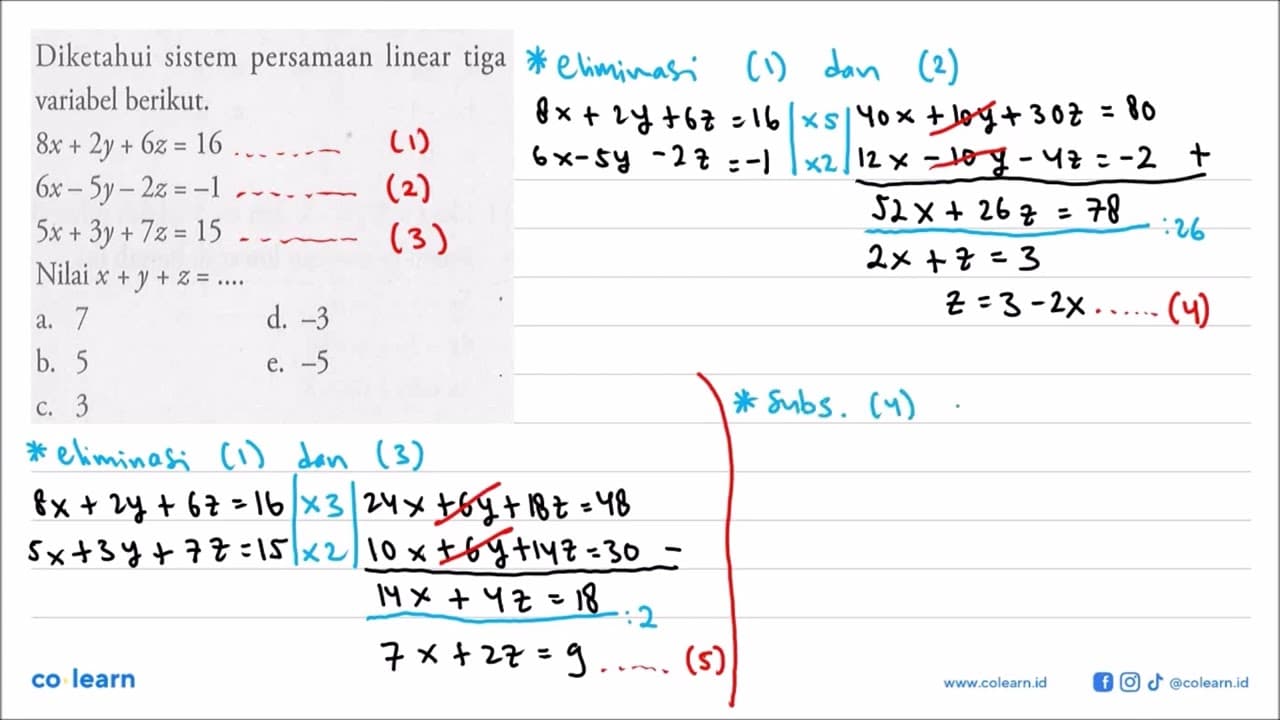 Diketahui sistem persamaan linear tiga
variabel berikut.
8x + 2y + 6z = 16 ............ (1)
6x – 5y – 2z = –1 ............ (2)
5x + 3y + 7z = 15 ............ (3)
Nilai x + y + z = ....
a. 7 d. –3
b. 5 e. –5
c. 3
* eliminasi (1) dan (2)
8x + 2y + 6z = 16 | x5 | 40x + 10y + 30z = 80
6x - 5y - 2z = -1 | x2 | 12x - 10y - 4z = -2 +
52x + 26z = 78
:26
2x + z = 3
z = 3 - 2x ...... (4)
* eliminasi (1) dan (3)
8x + 2y + 6z = 16 | x3 | 24x + 6y + 18z = 48
5x + 3y + 7z = 15 | x2 | 10x + 6y + 14z = 30 -
14x + 4z = 18
:2
7x + 2z = 9 ...... (5)
* Subs. (4)
co learn
www.colearn.id @colearn.id